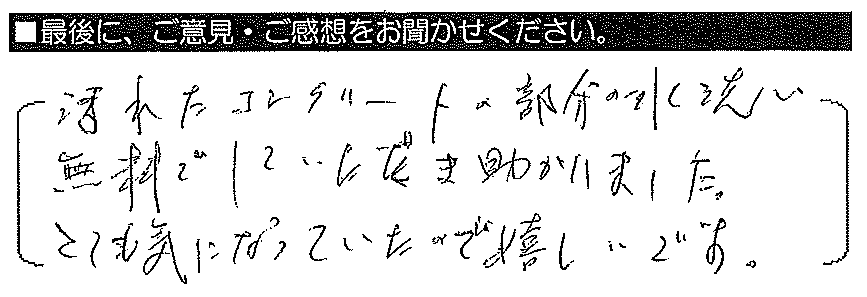 ■最後に、ご意見・ご感想をお聞かせください。
汚れたコンクリートの部分の水洗い
無料でしていただき助かりました。
とても気になっていたので嬉しいです。